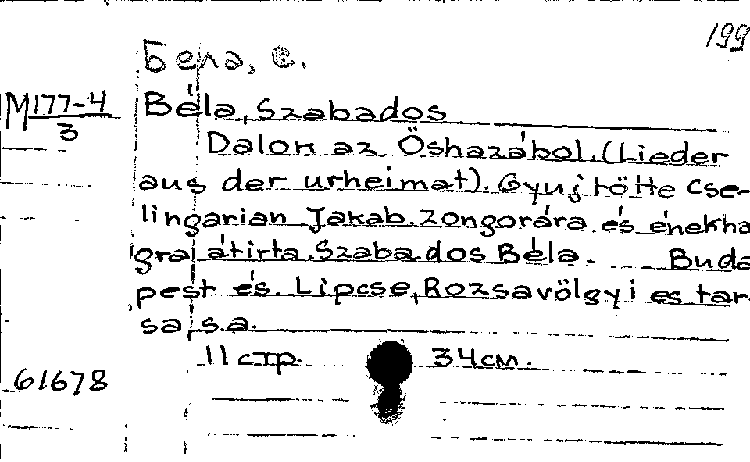 199
Бела, С.
M177-4
3
Béla, Szabados
Dalok az Őshazából. (Lieder
aus der urheimat). Gyujtötte Cse-
lingarian Jakab. Zongorára és énekha
gra átirta Szabados Béla. Buda
pest és Lipcse, Rozsavölgyi es tar
sa, s.a.
11 стр. 34 см.
61678